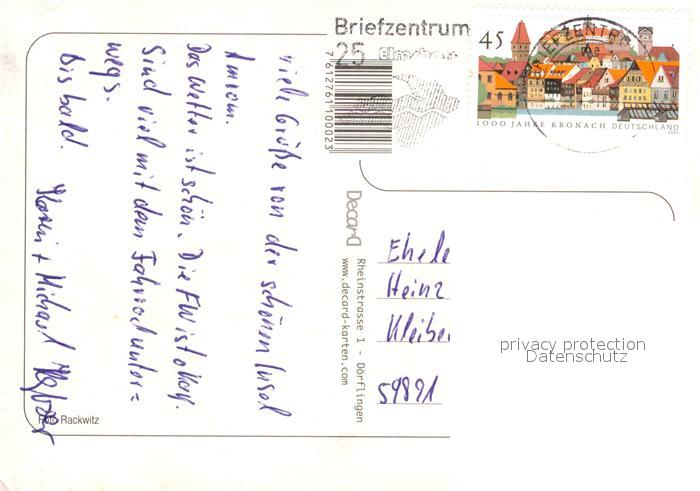 viele Grüße von der schönen Insel
Amrum.
Das Wetter ist schön. Die FW ist okay.
Sind viel mit dem Fahrrad unter=
wegs.
Bis bald.
+ Michael
Foto Rackwitz
Briefzentrum
25
7612761100023
Decard
Rheinstrasse 1 - Dörflingen
www.decard-karten.com
45
1000 JAHRE KRONACH DEUTSCHLAND
2003
BRIEFZENTRUM
Ehele
Heinz
Kleiber
59891
privacy protection
Datenschutz